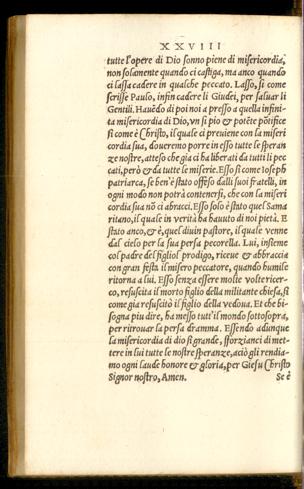 XXVIII
tutte l'opere di Dio sonno piene di misericordia,
non solamente quando ci castiga, ma anco quando
ci lassa cadere in qualche peccato. Lasso, si come
scrisse Paulo, infin cadere li Giudei, per saluar li
Gentili. Hauẽdo di poi noi a presso a quella infini-
ta misericordia di Dio, vn si pio & potẽte põtifice
si come è Christo, il quale ci preuiene con la miseri
cordia sua, doueremo porre in esso tutte le speran
ze nostre, atteso che gia ci ha liberati da tutti li pec
cati, però & da tutte le miserie. Esso si come Ioseph
patriarca, se ben'è stato offéso dalli suoi fratelli, in
ogni modo non potrà contenersi, che con la miseri
cordia sua nõ ci abracci. Esso solo è stato quel Sama
ritano, il quale in verità ha hauuto di noi pietà. E
stato anco, & è, quel diuin pastore, il quale venne
dal cielo per la sua persa pecorella. Lui, insieme
col padre del figliol prodigo, riceue & abbraccia
con gran festa il misero peccatore, quando humile
ritorna a lui. Esso senza essere molte volte ricer-
co, resuscita il morto figlio della militante chiesa, si
come gia resuscitò il figlio della vedoua. Et che bi-
sogna piu dire, ha messo tutt'il mondo sottosopra,
per ritrouar la persa dramma. Essendo adunque
la misericordia di dio si grande, sforzianci di met-
tere in lui tutte le nostre speranze, aciò gli rendia-
mo ogni laude honore & gloria, per Giesu Christo
Signor nostro, Amen.
Se è